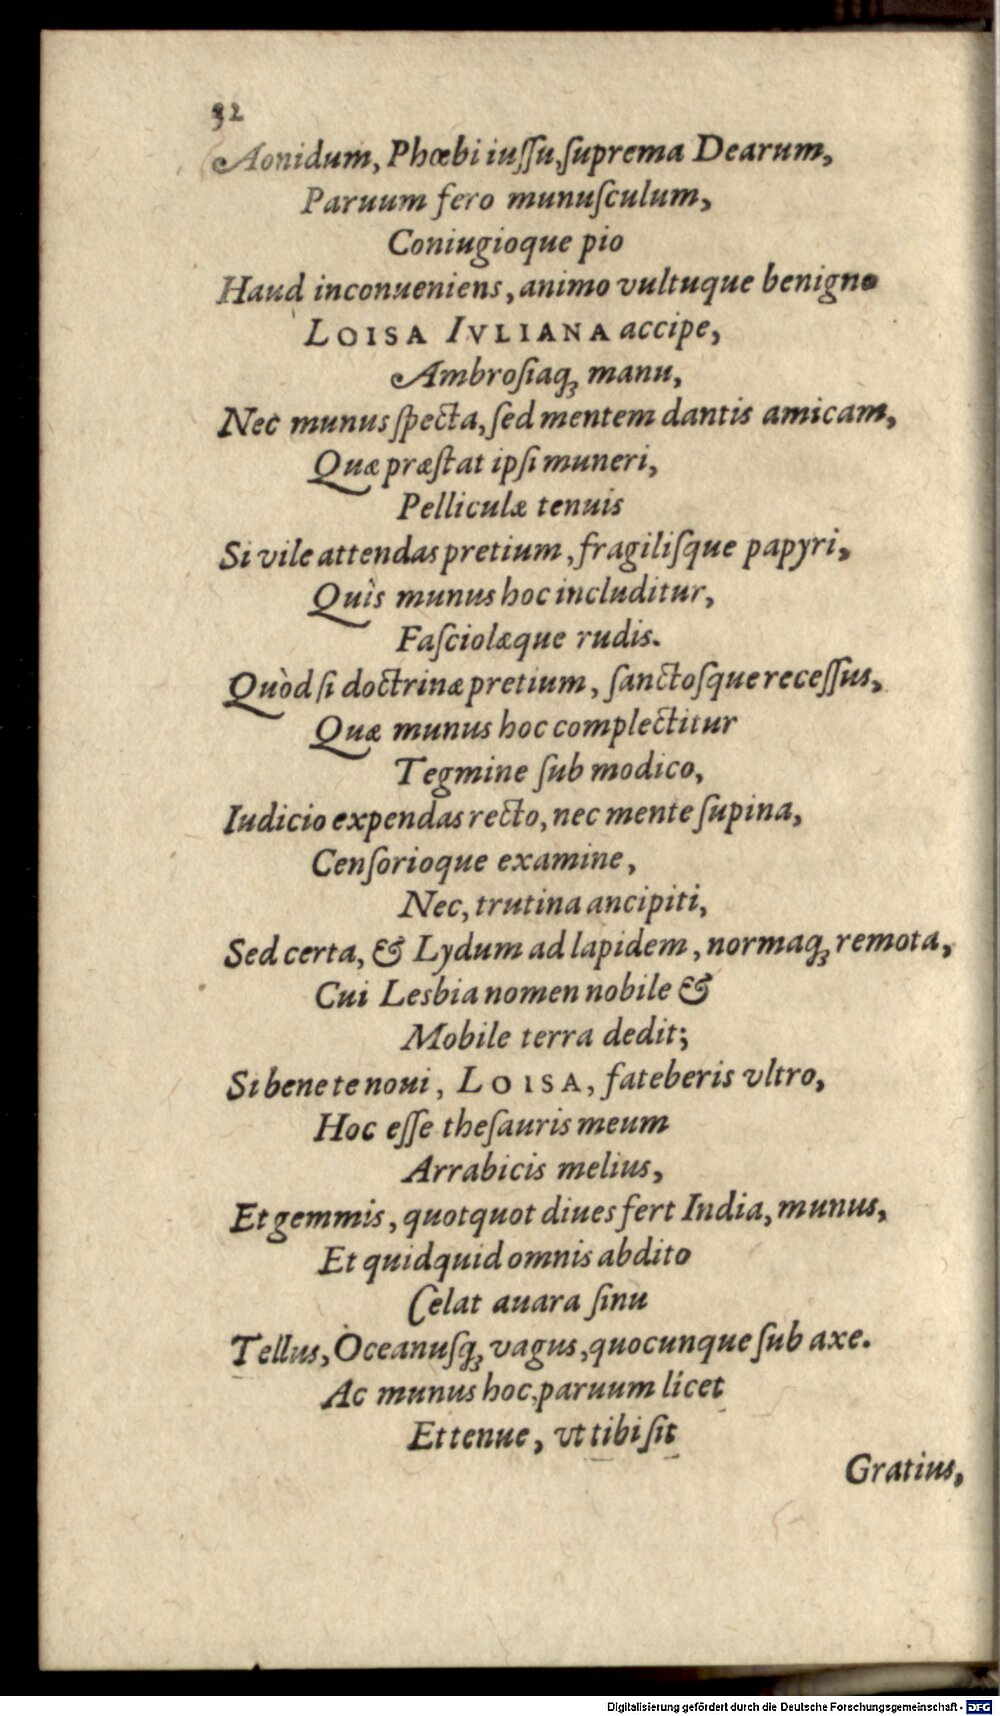 32
Aonidum, Phœbi iuſſu, ſuprema Dearum,
Paruum fero munuſculum,
Coniugioque pio
Haud inconueniens, animo vultuque benigno
LOISA IVLIANA accipe,
Ambroſiaq́; manu,
Nec munus ſpecta, ſed mentem dantis amicam,
Quæ præſtat ipſi muneri,
Pelliculæ tenuis
Si vile attendas pretium, fragiliſque papyri,
Quìs munus hoc includitur,
Faſciolæque rudis.
Quòd ſi doctrinæ pretium, ſanctoſque receſſus,
Quæ munus hoc complectitur
Tegmine ſub modico,
Iudicio expendas recto, nec mente ſupina,
Cenſorioque examine,
Nec, trutina ancipiti,
Sed certa, & Lydum ad lapidem, normaq; remota,
Cui Lesbia nomen nobile &
Mobile terra dedit;
Si bene te noui, LOISA, fateberis vltro,
Hoc eſſe theſauris meum
Arrabicis melius,
Et gemmis, quotquot diues fert India, munus,
Et quidquid omnis abdito
Celat auara ſinu
Tellus, Oceanuſq; vagus, quocunque ſub axe.
Ac munus hoc, paruum licet
Et tenue, vt tibi ſit
Gratius,
Digitalisierung gefördert durch die Deutsche Forschungsgemeinschaft - DFG